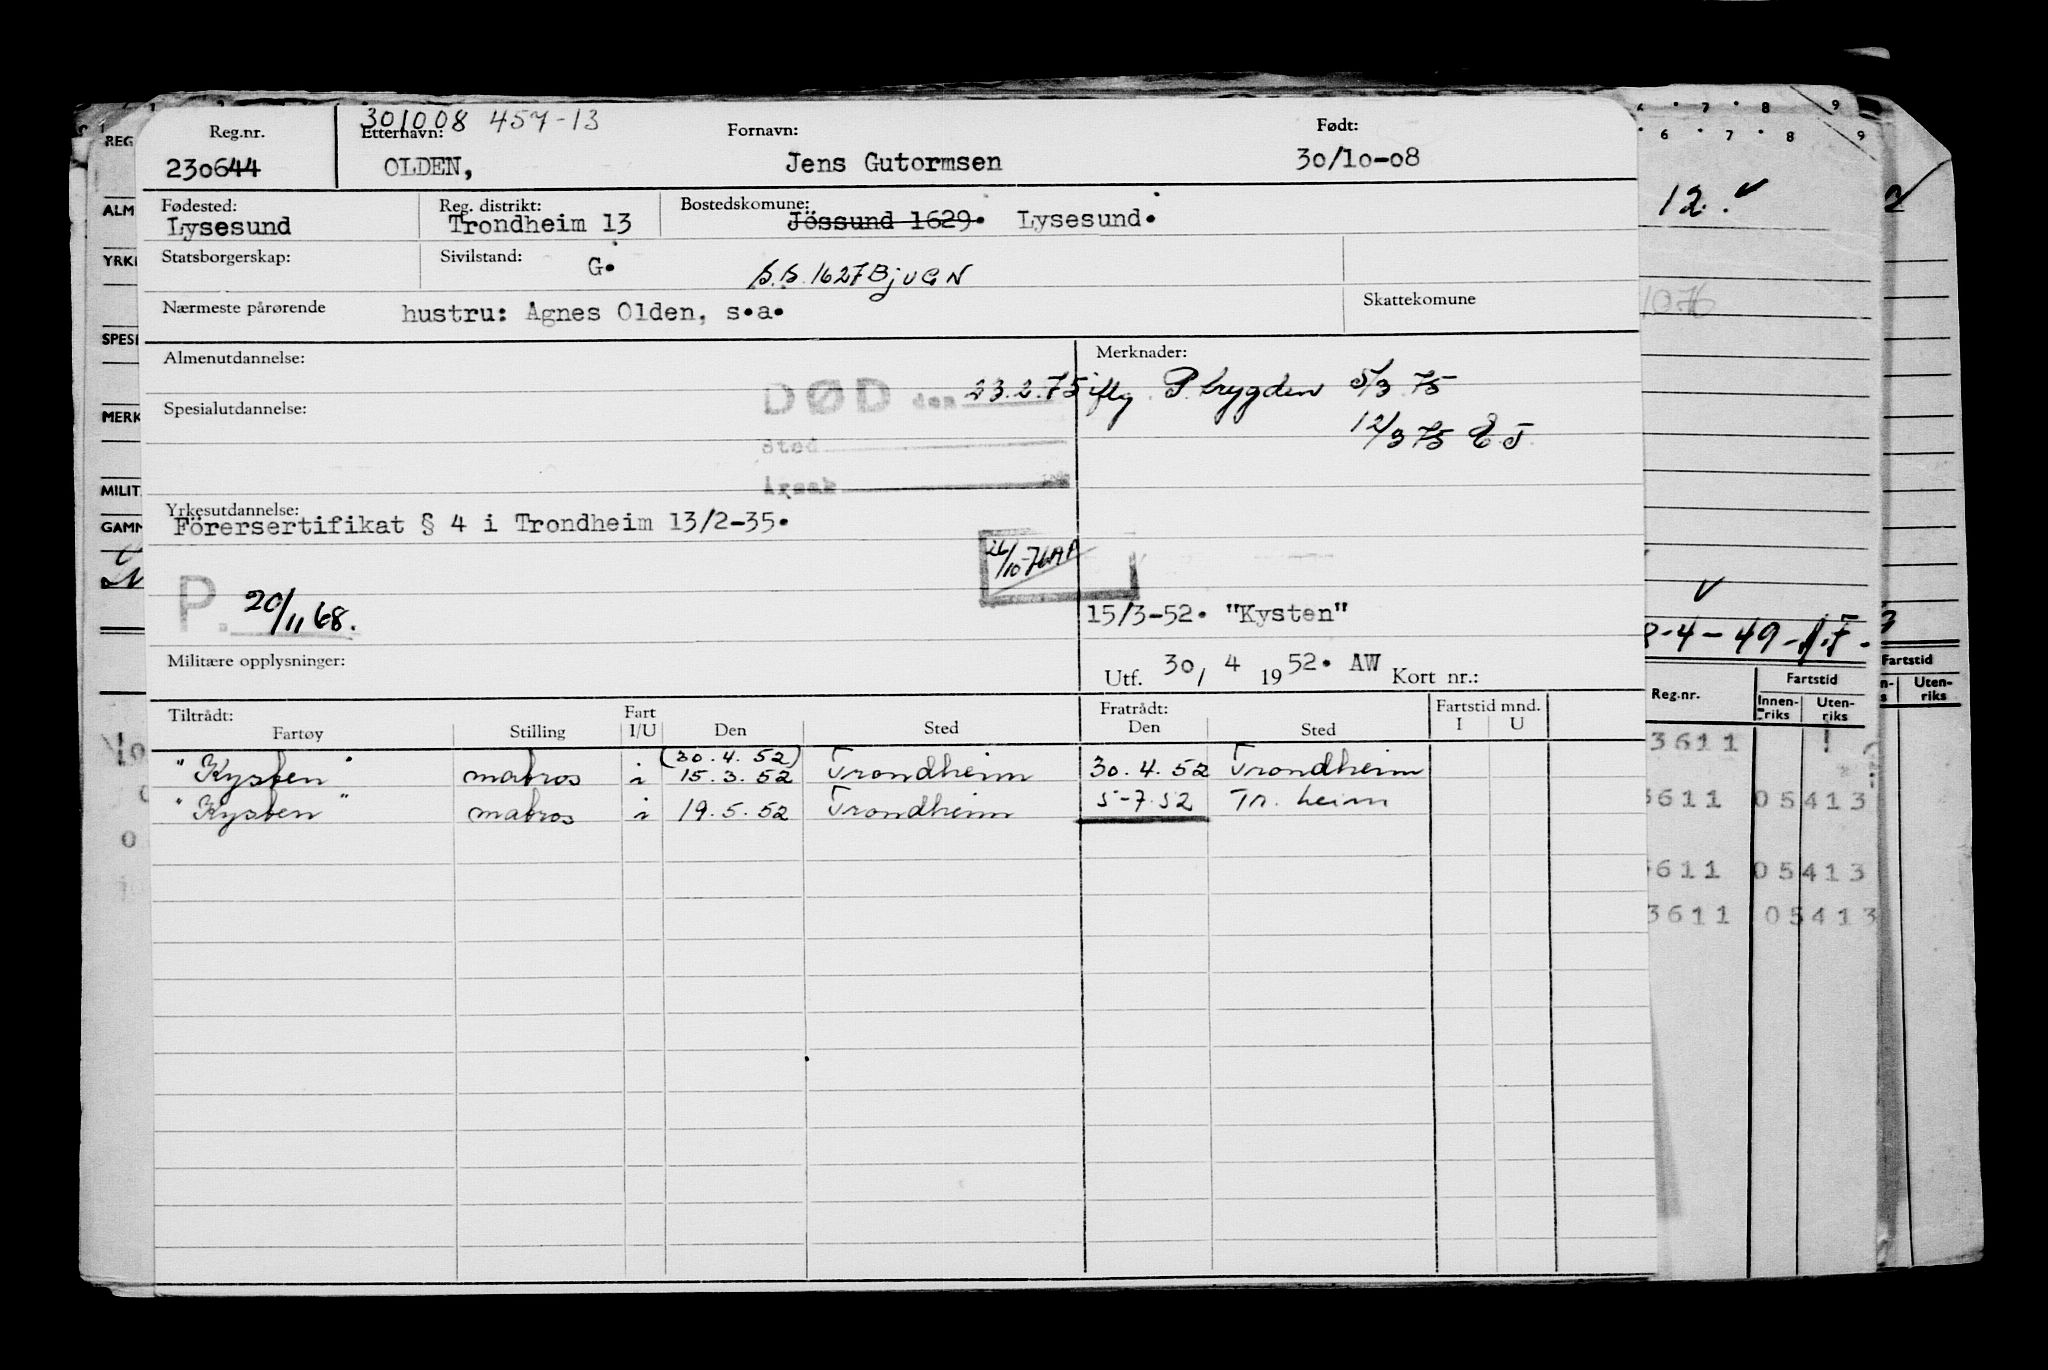 301008 457-13
Reg.nr. Etternavn: Fornavn: Født:
230644 OLDEN, Jens Gutormsen 30/10-08
Fødested: Reg. distrikt: Bostedskomune:
Lysesund Trondheim 13 Jössund 1629. Lysesund.
Statsborgerskap: Sivilstand: G. 1627 BJUGN
Nærmeste pårørende hustru: Agnes Olden, s.a. Skattekomune
Almenutdannelse: Merknader:
DØD den 23.2.75 iflg. P. trygden 5/3 75
Spesialutdannelse:
12/3 75 E J
Sted
Årsak
Yrkesutdannelse:
Förersertifikat § 4 i Trondheim 13/2-35.
26/10-76
P. 20/11 68.
15/3-52. "Kysten"
Militære opplysninger:
Utf. 30/ 4 1952. AW Kort nr.:
Tiltrådt: Fart Fratrådt: Fartstid mnd.
Fartøy Stilling I/U Den Sted Den Sted I U
(30.4.52)
"Kysten" matros i 15.3.52 Trondheim 30.4.52 Trondheim
"Kysten" matros i 19.5.52 Trondheim 5-7.52 Tr.heim
REG
ALM
YRKE
SPESI
MERK
MILIT
GAMM
6 7 8 9
6 7 8 9
12.
1076
8-4-49
Fartstid
Reg.nr.
Innen-riks Uten-riks
3611
3611 05413
3611 05413
3611 05413
Fartstid
Uten-riks